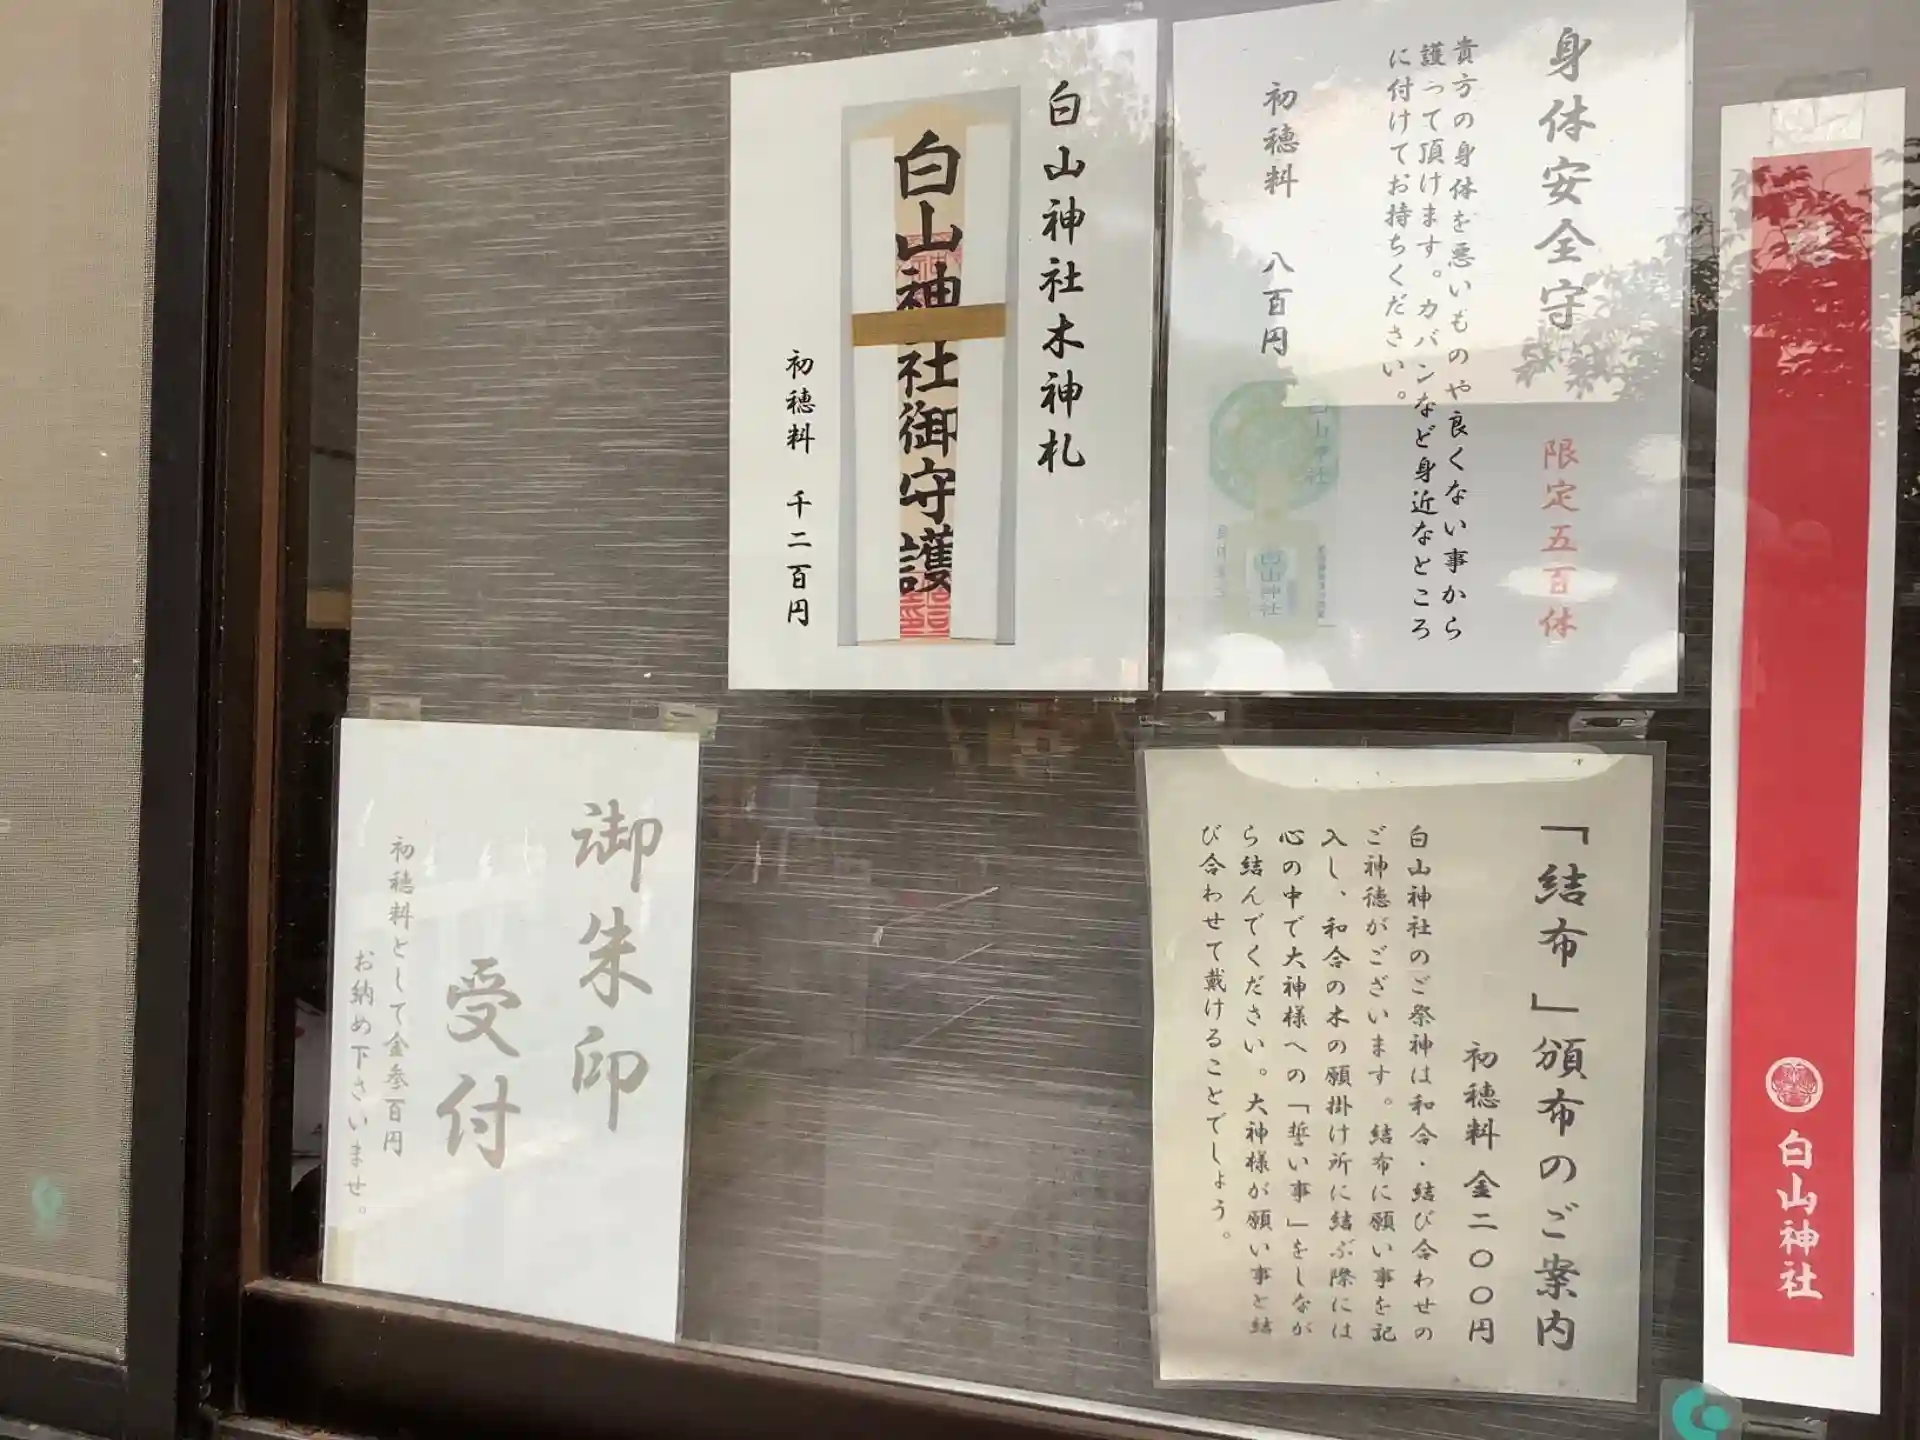 身体安全守
限定五百体
貴方の身体を悪いものや良くない事から
護って頂けます。カバンなど身近なところ
に付けてお持ちください。
初穂料 八百円
白山神社
白山神社木神札
白山神社御守護
初穂料 千二百円
結
白山神社
「結布」頒布のご案内
初穂料 金二〇〇円
白山神社のご祭神は和合・結び合わせの
ご神徳がございます。結布に願い事を記
入し、和合の木の願掛け所に結ぶ際には
心の中で大神様への「誓い事」をしなが
ら結んでください。大神様が願い事と結
び合わせて戴けることでしょう。
御朱印
受付
初穂料として金参百円
お納め下さいませ。